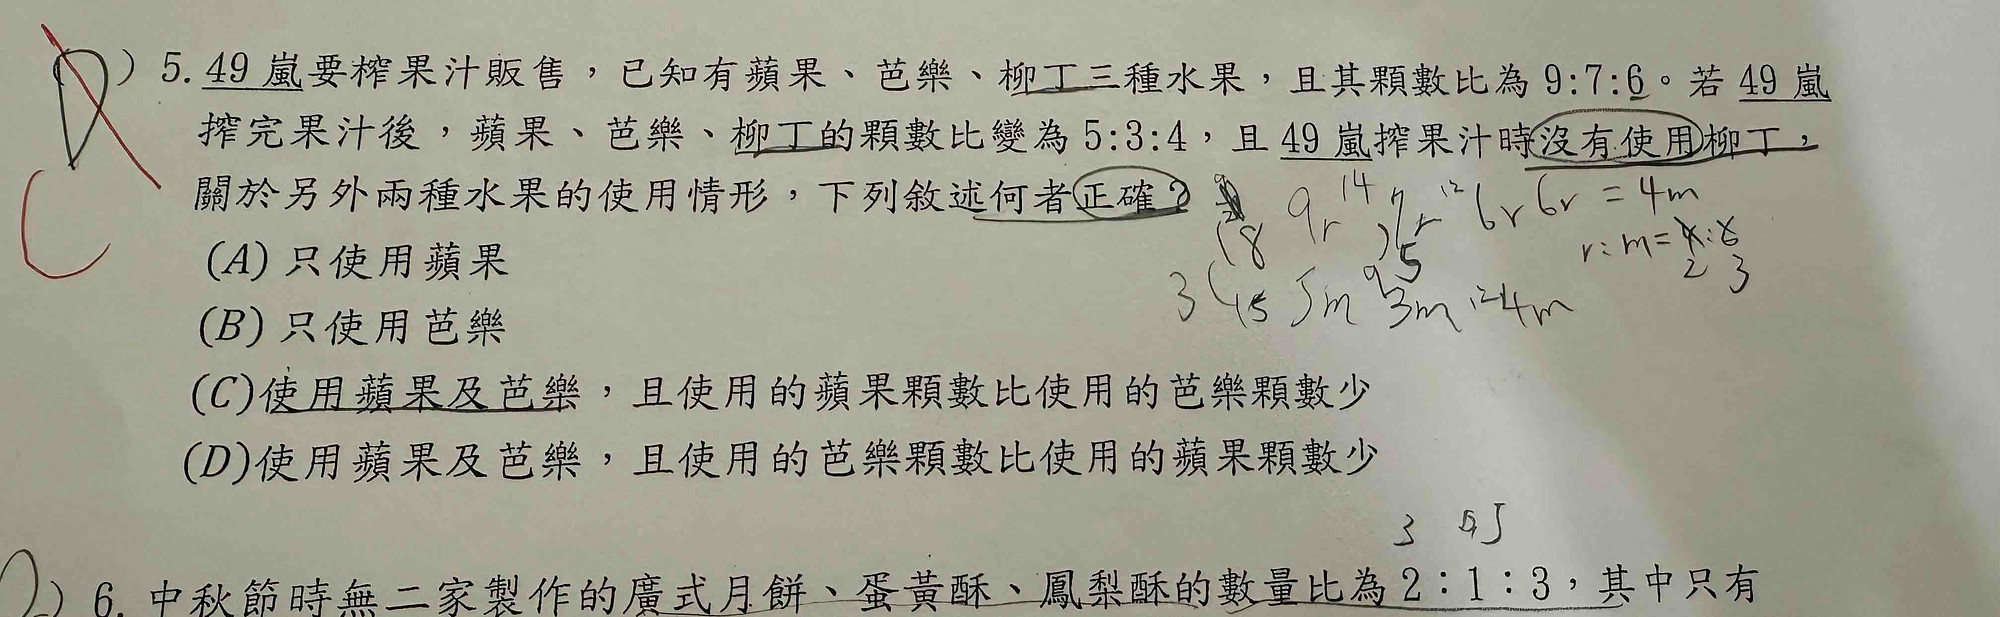 D
C
) 5. 49 嵐要榨果汁販售，已知有蘋果、芭樂、柳丁三種水果，且其顆數比為 9:7:6。若 49 嵐
搾完果汁後，蘋果、芭樂、柳丁的顆數比變為 5:3:4，且 49 嵐搾果汁時沒有使用柳丁，
關於另外兩種水果的使用情形，下列敘述何者正確？
18 9r 14 7r 12 6r 6r = 4m
r:m=4:6
2 3
5
3 15 5m 9 3m 12 4m
(A) 只使用蘋果
(B) 只使用芭樂
(C)使用蘋果及芭樂，且使用的蘋果顆數比使用的芭樂顆數少
(D)使用蘋果及芭樂，且使用的芭樂顆數比使用的蘋果顆數少
3 5
) 6. 中秋節時無二家製作的廣式月餅、蛋黃酥、鳳梨酥的數量比為 2：1：3，其中只有